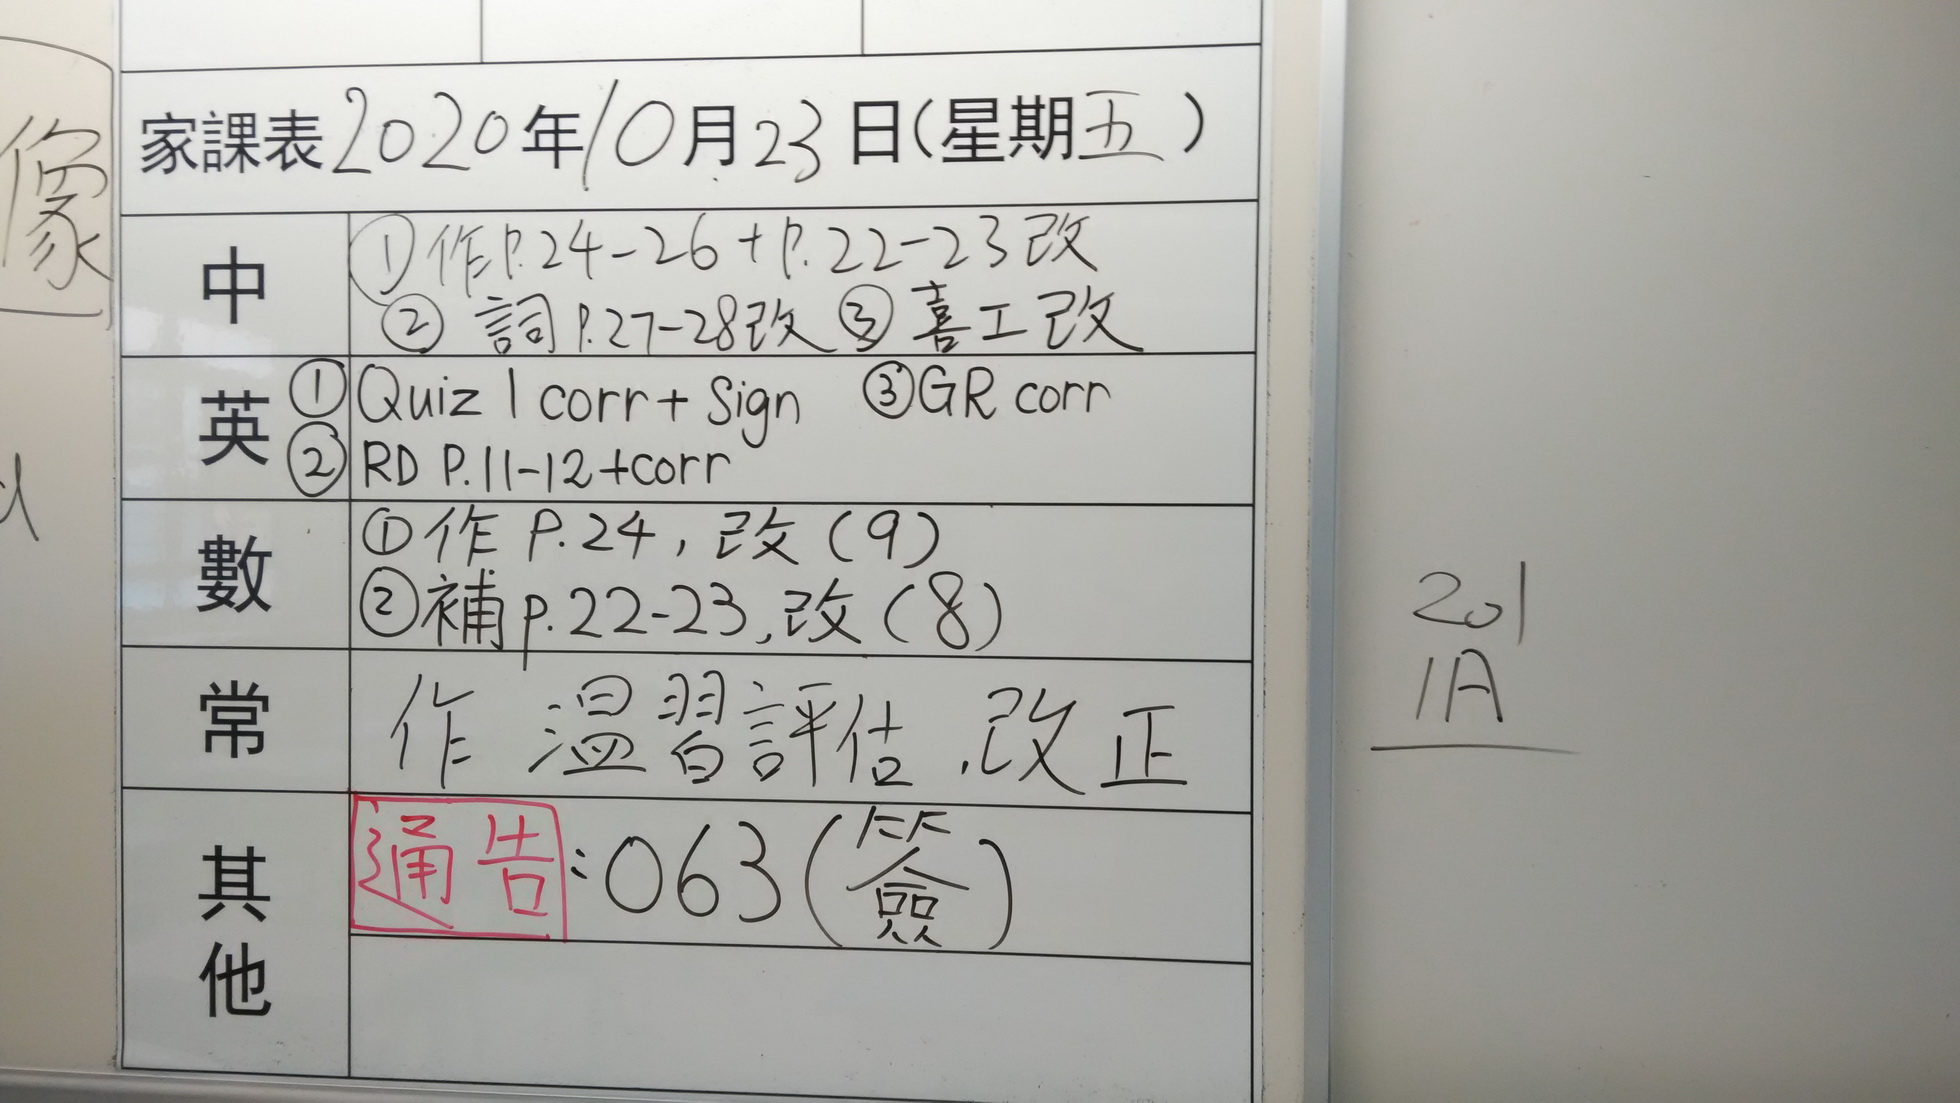 像
家課表2020年10月23日(星期五)
中
①作P.24-26+P.22-23改
②詞P.27-28改 ③喜工改
英
①Quiz 1 corr+Sign ③GR corr
②RD P.11-12+corr
數
①作 P.24, 改(9)
②補p.22-23,改(8)
常
作 溫習評估,改正
其他
通告:063(簽)
201
1A